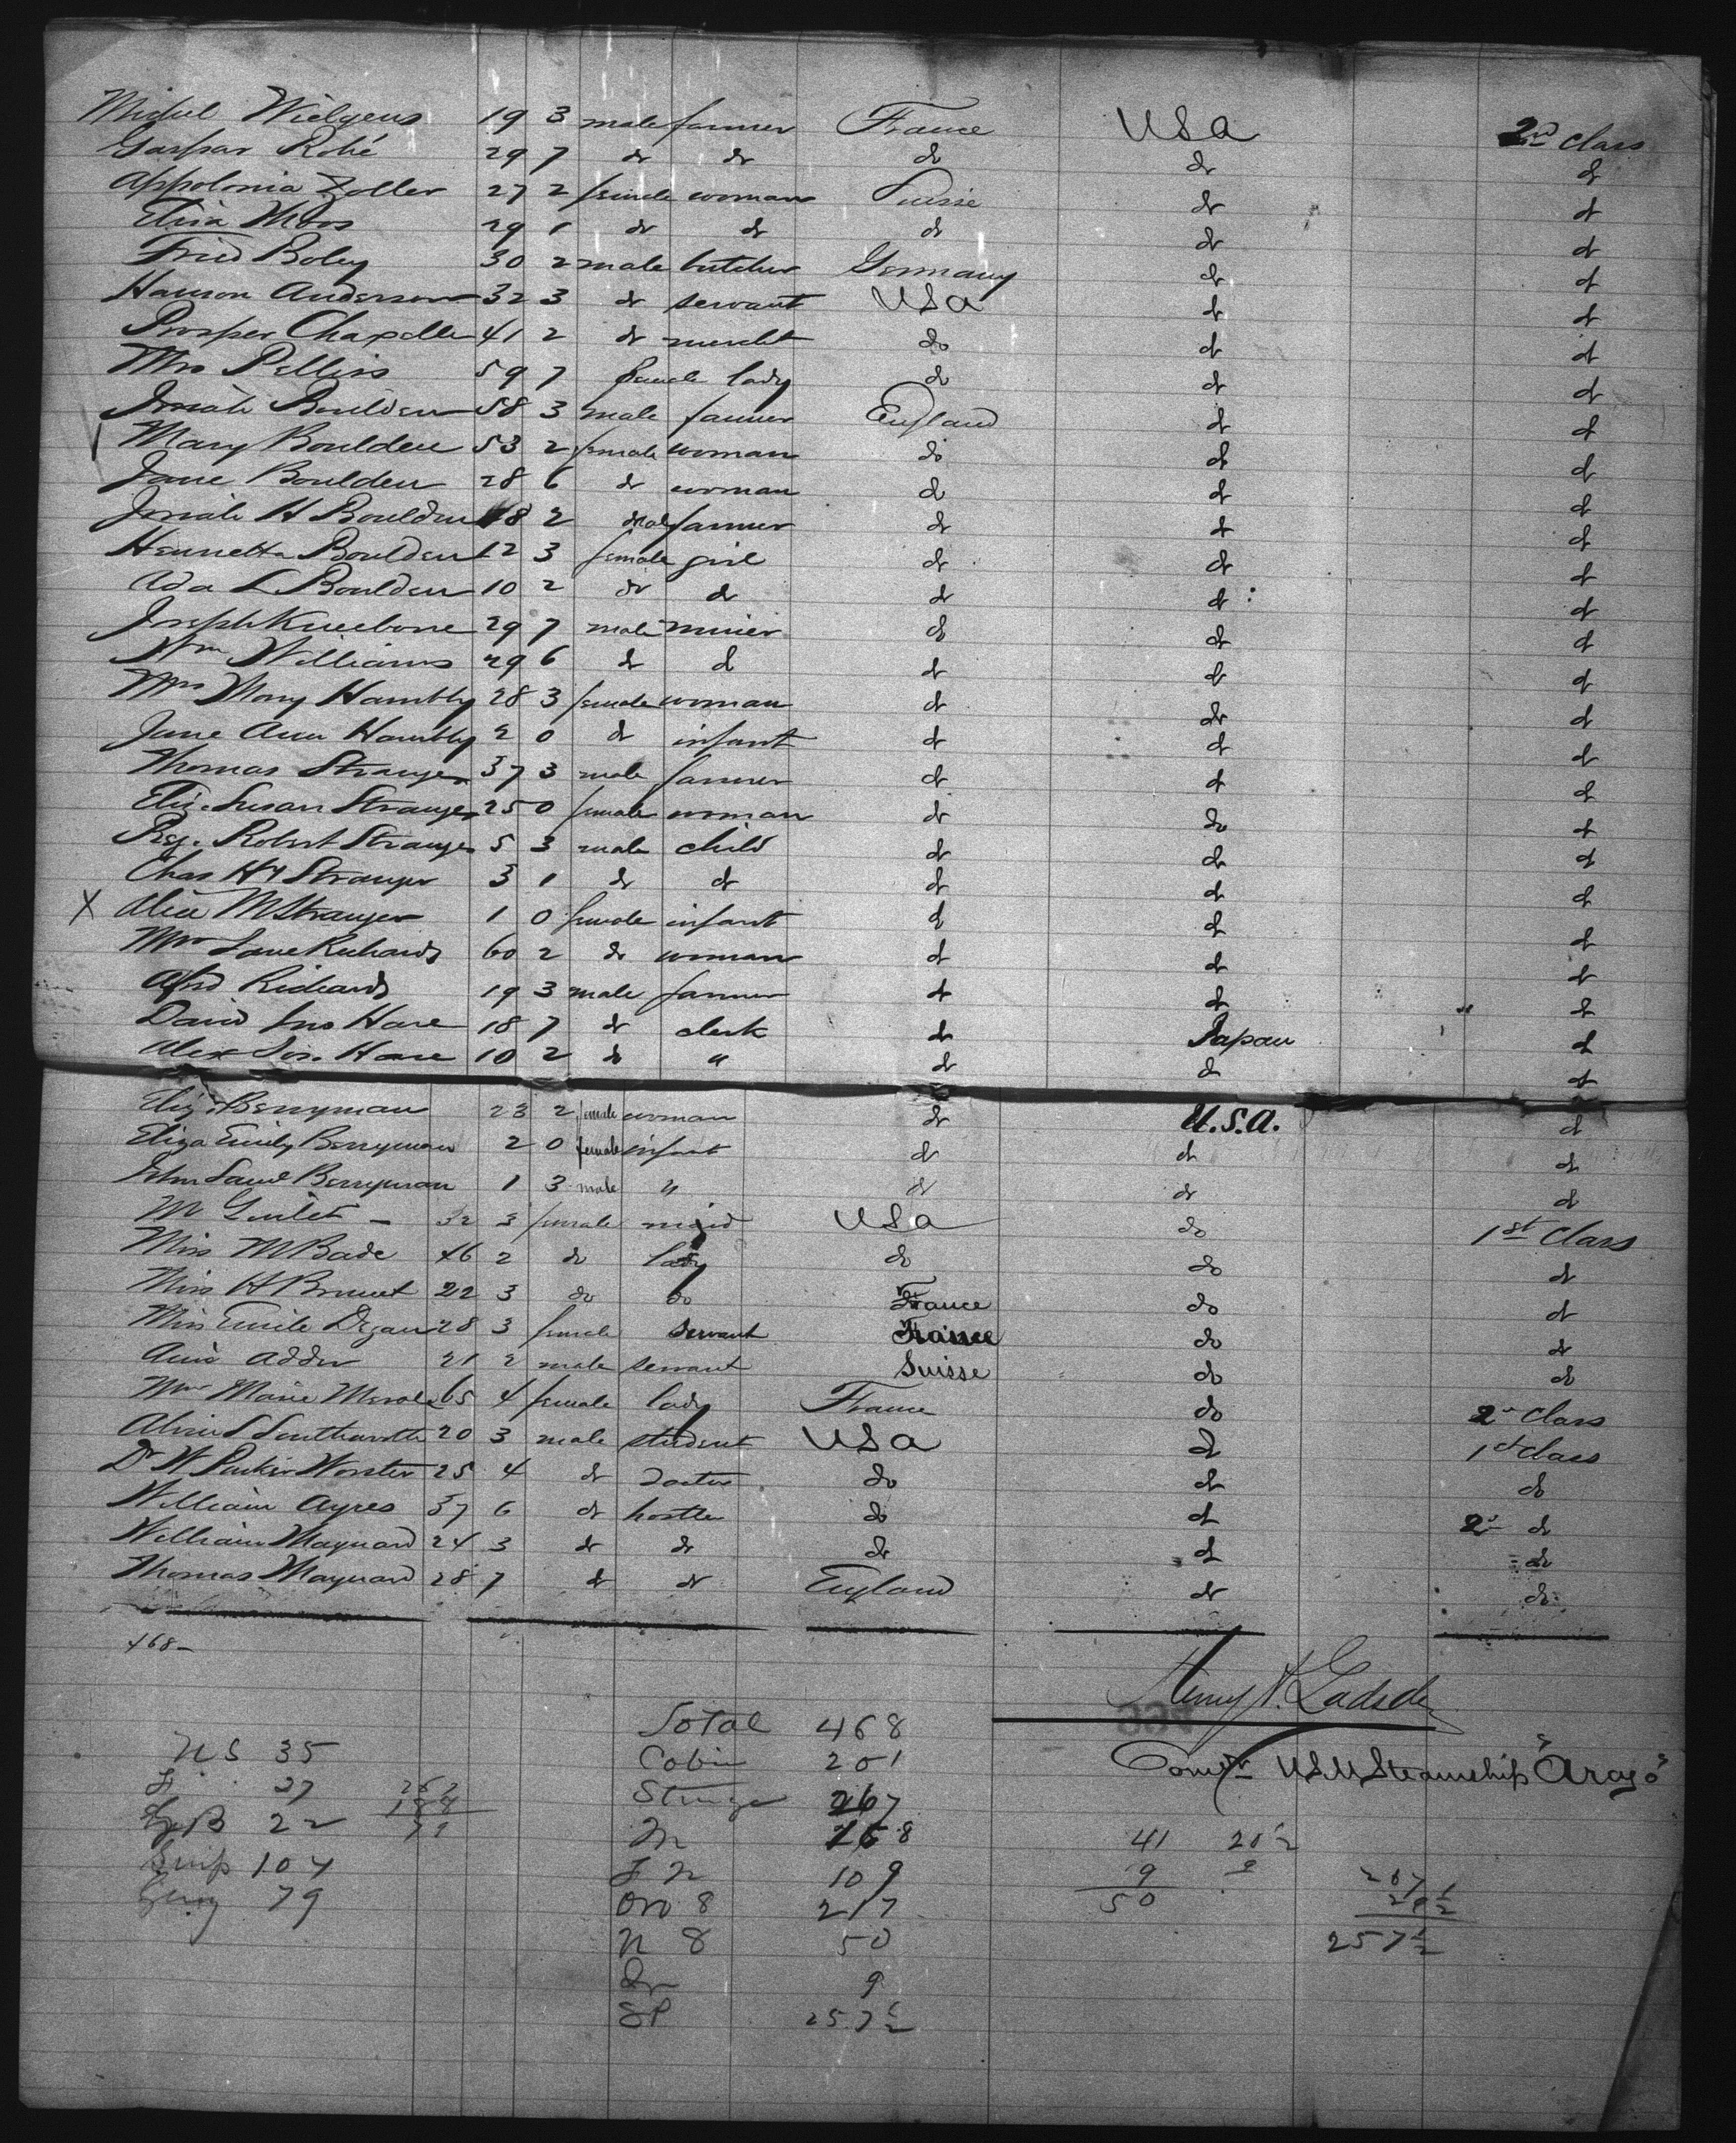 Michel Wielgens 19 3 male farmer France USA 2nd class
Gaspar Rohé 29 7 do do do do do
Appolonia Zoller 27 2 female woman Suisse do do
Elisa Moos 29 1 do do do do do
Fried Boley 30 2 male butcher Germany do do
Hanson Anderson 32 3 do servant USA do do
Prosper Chapelle 41 2 do mercht do do do
Mrs Pellirs 59 7 female lady do do do
Josiah Boulden 58 3 male farmer England do do
Mary Boulden 53 2 female woman do do do
Jane Boulden 28 6 do woman do do do
Josiah H Boulden 18 2 male farmer do do do
Henrietta Boulden 12 3 female girl do do do
Ada L Boulden 10 2 do do do do do
Joseph Kneebone 29 7 male miner do do do
Wm Williams 29 6 do do do do do
Mrs Mary Hambly 28 3 female woman do do do
Jane Ann Hambly 2 0 do infant do do do
Thomas Stranger 37 3 male farmer do do do
Eliz. Susan Stranger 25 0 female woman do do do
Regd. Robert Stranger 5 3 male child do do do
Chas Hy Stranger 3 1 do do do do do
X Alice M Stranger 1 0 female infant do do do
Mrs Jane Richards 60 2 do woman do do do
Alfrd Richards 19 3 male farmer do do do
David Jno Hare 18 7 do clerk do Japan do
Alex Jos. Hare 10 2 do " do do do
Eliz. Berryman 23 2 female woman do U.S.A. do
Eliza Emily Berryman 2 0 female infant do do do
John Saml Berryman 1 3 male " do do do
M 32 3 female maid USA do 1st Class
Miss M Bade 46 2 do lady do do do
Miss H Brunet 22 3 do do France do do
Miss Emile Dezau 28 3 female servant France do do
21 2 male servant Suisse do do
Mme Marie 65 4 female lady France do 2d Class
Alvin S Southworth 20 3 male student USA do 1st class
Dr W Parker Worster 25 4 do doctor do do do
William Ayres 37 6 do hostler do do 2d do
William Maynard 24 3 do do do do do
Thomas Maynard 28 7 do do England do do
468-
Henry A. Gadsden
Total 468
US 35 Cabin 201 Comdr USM Steamship "Arago"
F 27 262 Steerage 267
GB 22 M 168 41 20½
Suiss 104 109 9
Germ 79 Ov 8 217 50 257½
N 8 50
9
SP 257½